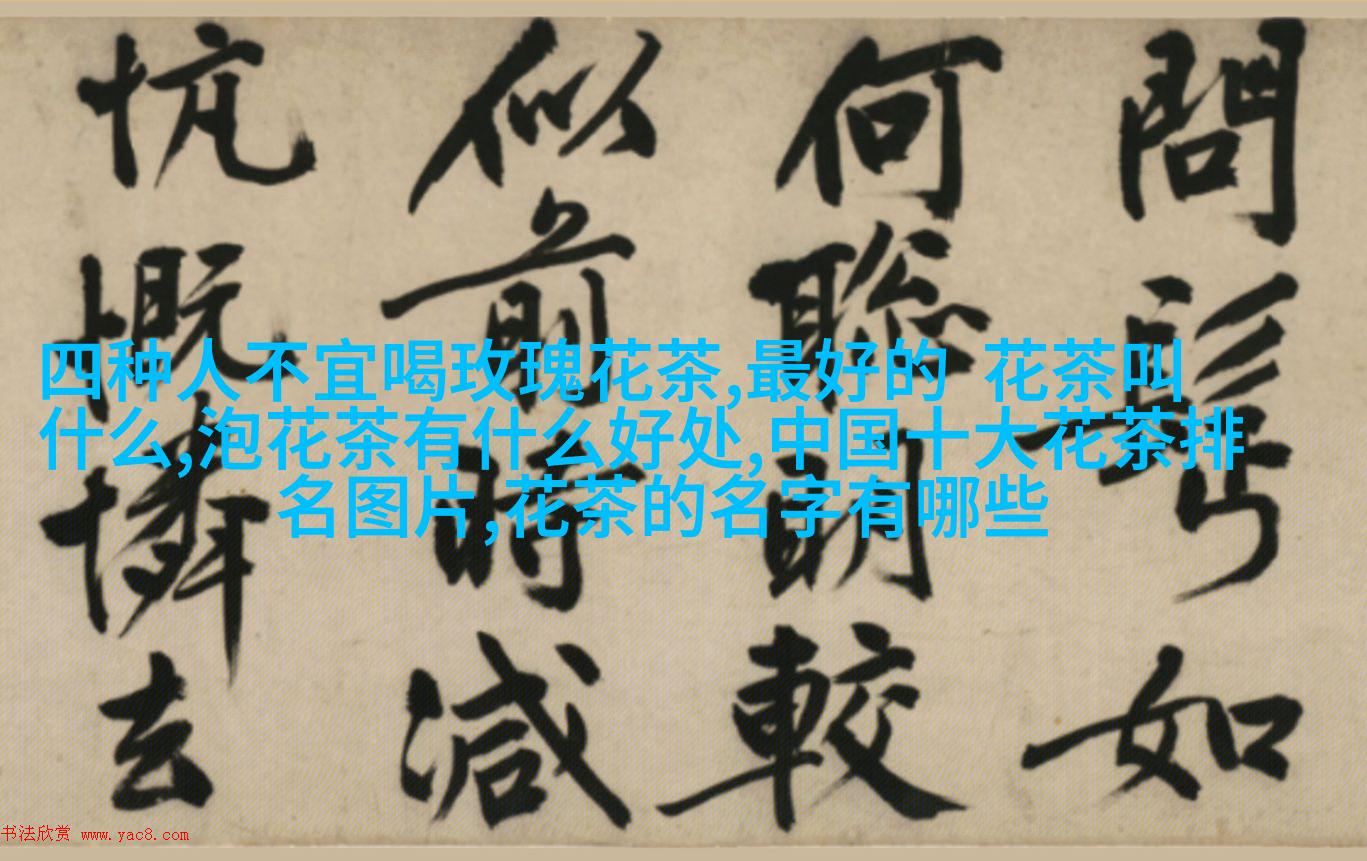 問如
何聰明較
似前時減
忼慨憐去
四种人不宜喝玫瑰花茶,最好的 花茶叫
什么,泡花茶有什么好处,中国十大花茶排
名图片,花茶的名字有哪些
书法欣赏 www.yac8.com